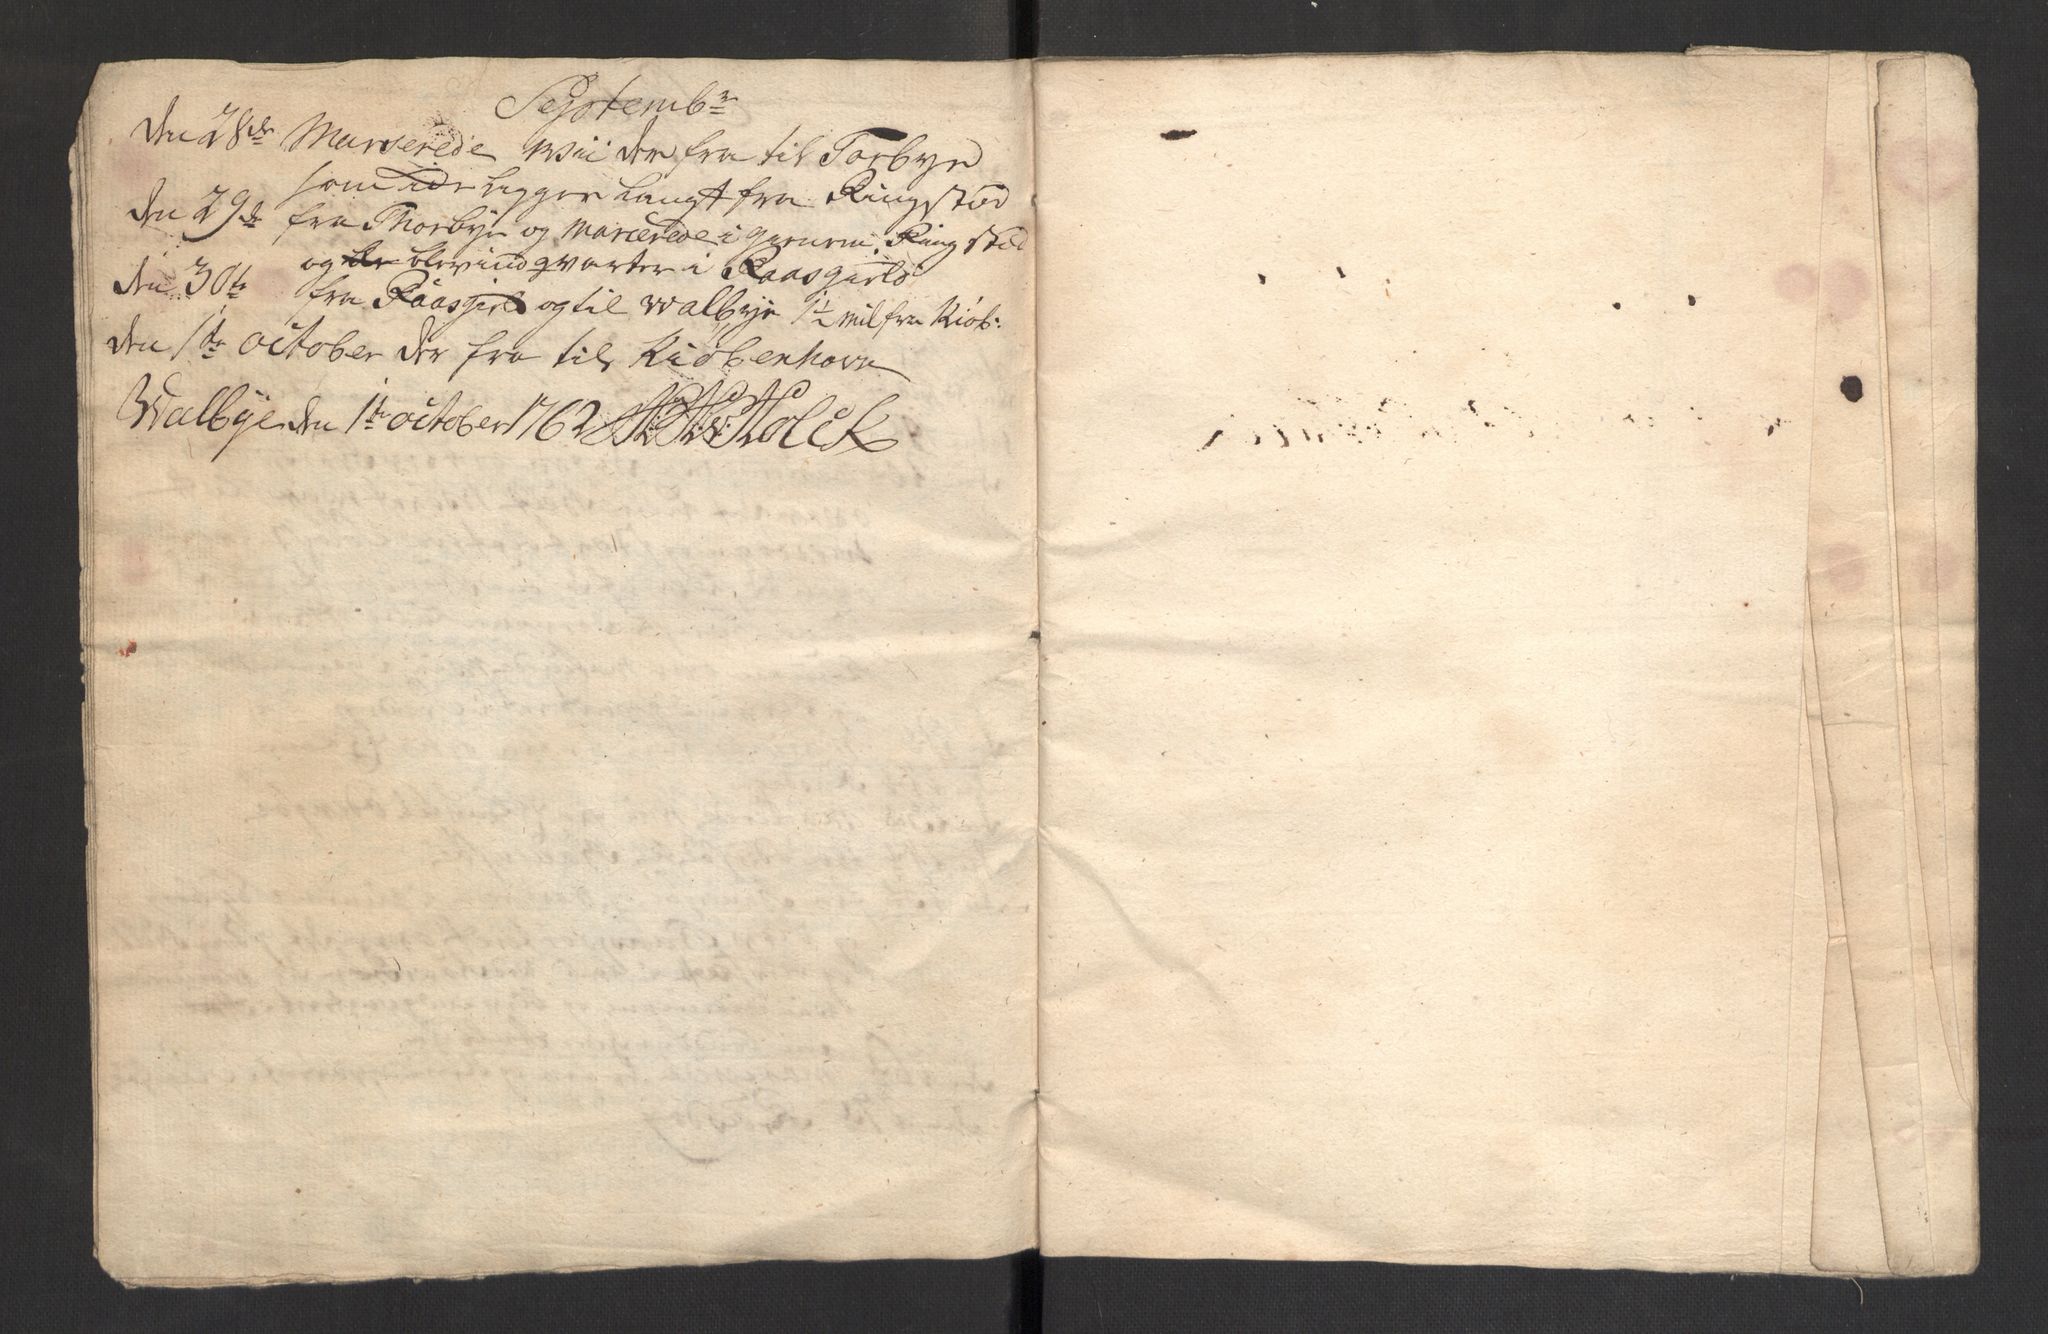 Septembr
den 28de Marserede wii der fra til Torbye
som ligger langt fra Ringstæd
den 29de fra Thorbye og marcerede i gienem Ringstæd
og blev indqvarteret i Raasgield
den 30te fra Raasgield og til Walbye 1½ mil fra Kiøb:
den 1te october der fra til Kiøbenhavn
Walbye den 1te october 1762 Holck